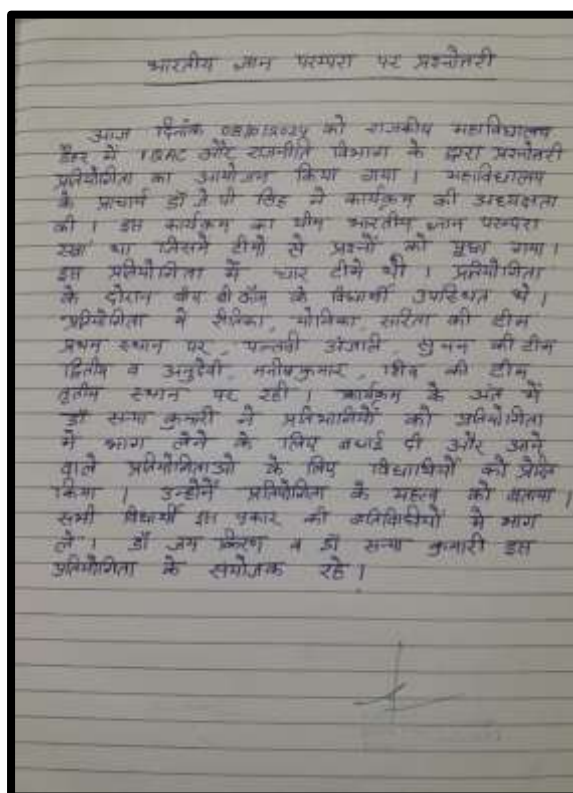 भारतीय ज्ञान परम्परा पर प्रश्नोत्तरी
आज दिनांक को राजकीय महाविद्यालय
में IQAC और राजनीति विभाग के द्वारा प्रश्नोत्तरी
प्रतियोगिता का आयोजन किया गया । महाविद्यालय
के प्राचार्य डॉ जे पी सिंह ने कार्यक्रम की अध्यक्षता
की । इस कार्यक्रम का थीम भारतीय ज्ञान परम्परा
रखा था जिसमें टीमों से प्रश्नों को पूछा गया ।
इस प्रतियोगिता में चार टीमें थी । प्रतियोगिता
के दौरान के विद्यार्थी उपस्थित थे ।
प्रतियोगिता में योगिता, सरिता की टीम
प्रथम स्थान पर, अंजलि की टीम
द्वितीय व अनुदेवी, मनीषकुमार, की टीम
तृतीय स्थान पर रही । कार्यक्रम के अंत में
डॉ कुमारी ने प्रतिभागियों को प्रतियोगिता
में भाग लेने के लिए बधाई दी और आने
वाले प्रतियोगिताओं के लिए विद्यार्थियों को
किया । उन्होंने प्रतियोगिता के महत्व को बताया ।
सभी विद्यार्थी इस प्रकार की में भाग
ले । डॉ किरण व डॉ कुमारी इस
प्रतियोगिता के संयोजक रहे ।